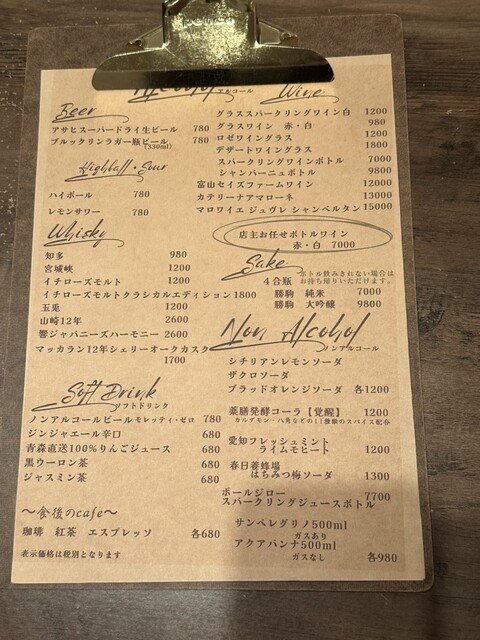 Alcohol アルコール
Beer
アサヒスーパードライ生ビール 780
ブルックリンラガー瓶ビール 780
(330ml)
Highball・Sour
ハイボール 780
レモンサワー 780
Whisky
知多 980
宮城峡 1200
イチローズモルト 1200
イチローズモルトクラシカルエディション1800
玉兎 1200
山崎12年 2600
響ジャパニーズハーモニー 2600
マッカラン12年シェリーオークカスク
1700
Soft Drink
ソフトドリンク
ノンアルコールビール モレッティ・ゼロ 780
ジンジャエール辛口 680
青森直送100%りんごジュース 680
黒ウーロン茶 680
ジャスミン茶 680
〜食後のcafe〜
珈琲 紅茶 エスプレッソ 各680
表示価格は税別となります
Wine
グラススパークリングワイン白 1200
グラスワイン 赤・白 980
ロゼワイングラス 1200
デザートワイングラス 1800
スパークリングワインボトル 7000
シャンパーニュボトル 9800
富山セイズファームワイン 12000
カテリーナアマローネ 13000
マロワイエ ジュヴレ シャンベルタン 15000
店主お任せボトルワイン
赤・白 7000
Sake
ボトル飲みきれない場合は
お持ち帰りいただけます。
4合瓶
勝駒 純米 7000
勝駒 大吟醸 9800
Non Alcohol
ノンアルコール
シチリアンレモンソーダ
ザクロソーダ
ブラッドオレンジソーダ 各1200
薬膳発酵コーラ【覚醒】 1200
カルダモン・八角などの11種類のスパイス配合
愛知フレッシュミント
ライムモヒート 1200
春日養蜂場
はちみつ梅ソーダ 1300
ポールジロー 7700
スパークリングジュースボトル
サンペレグリノ500ml
ガスあり
アクアパンナ500ml
ガスなし 各980